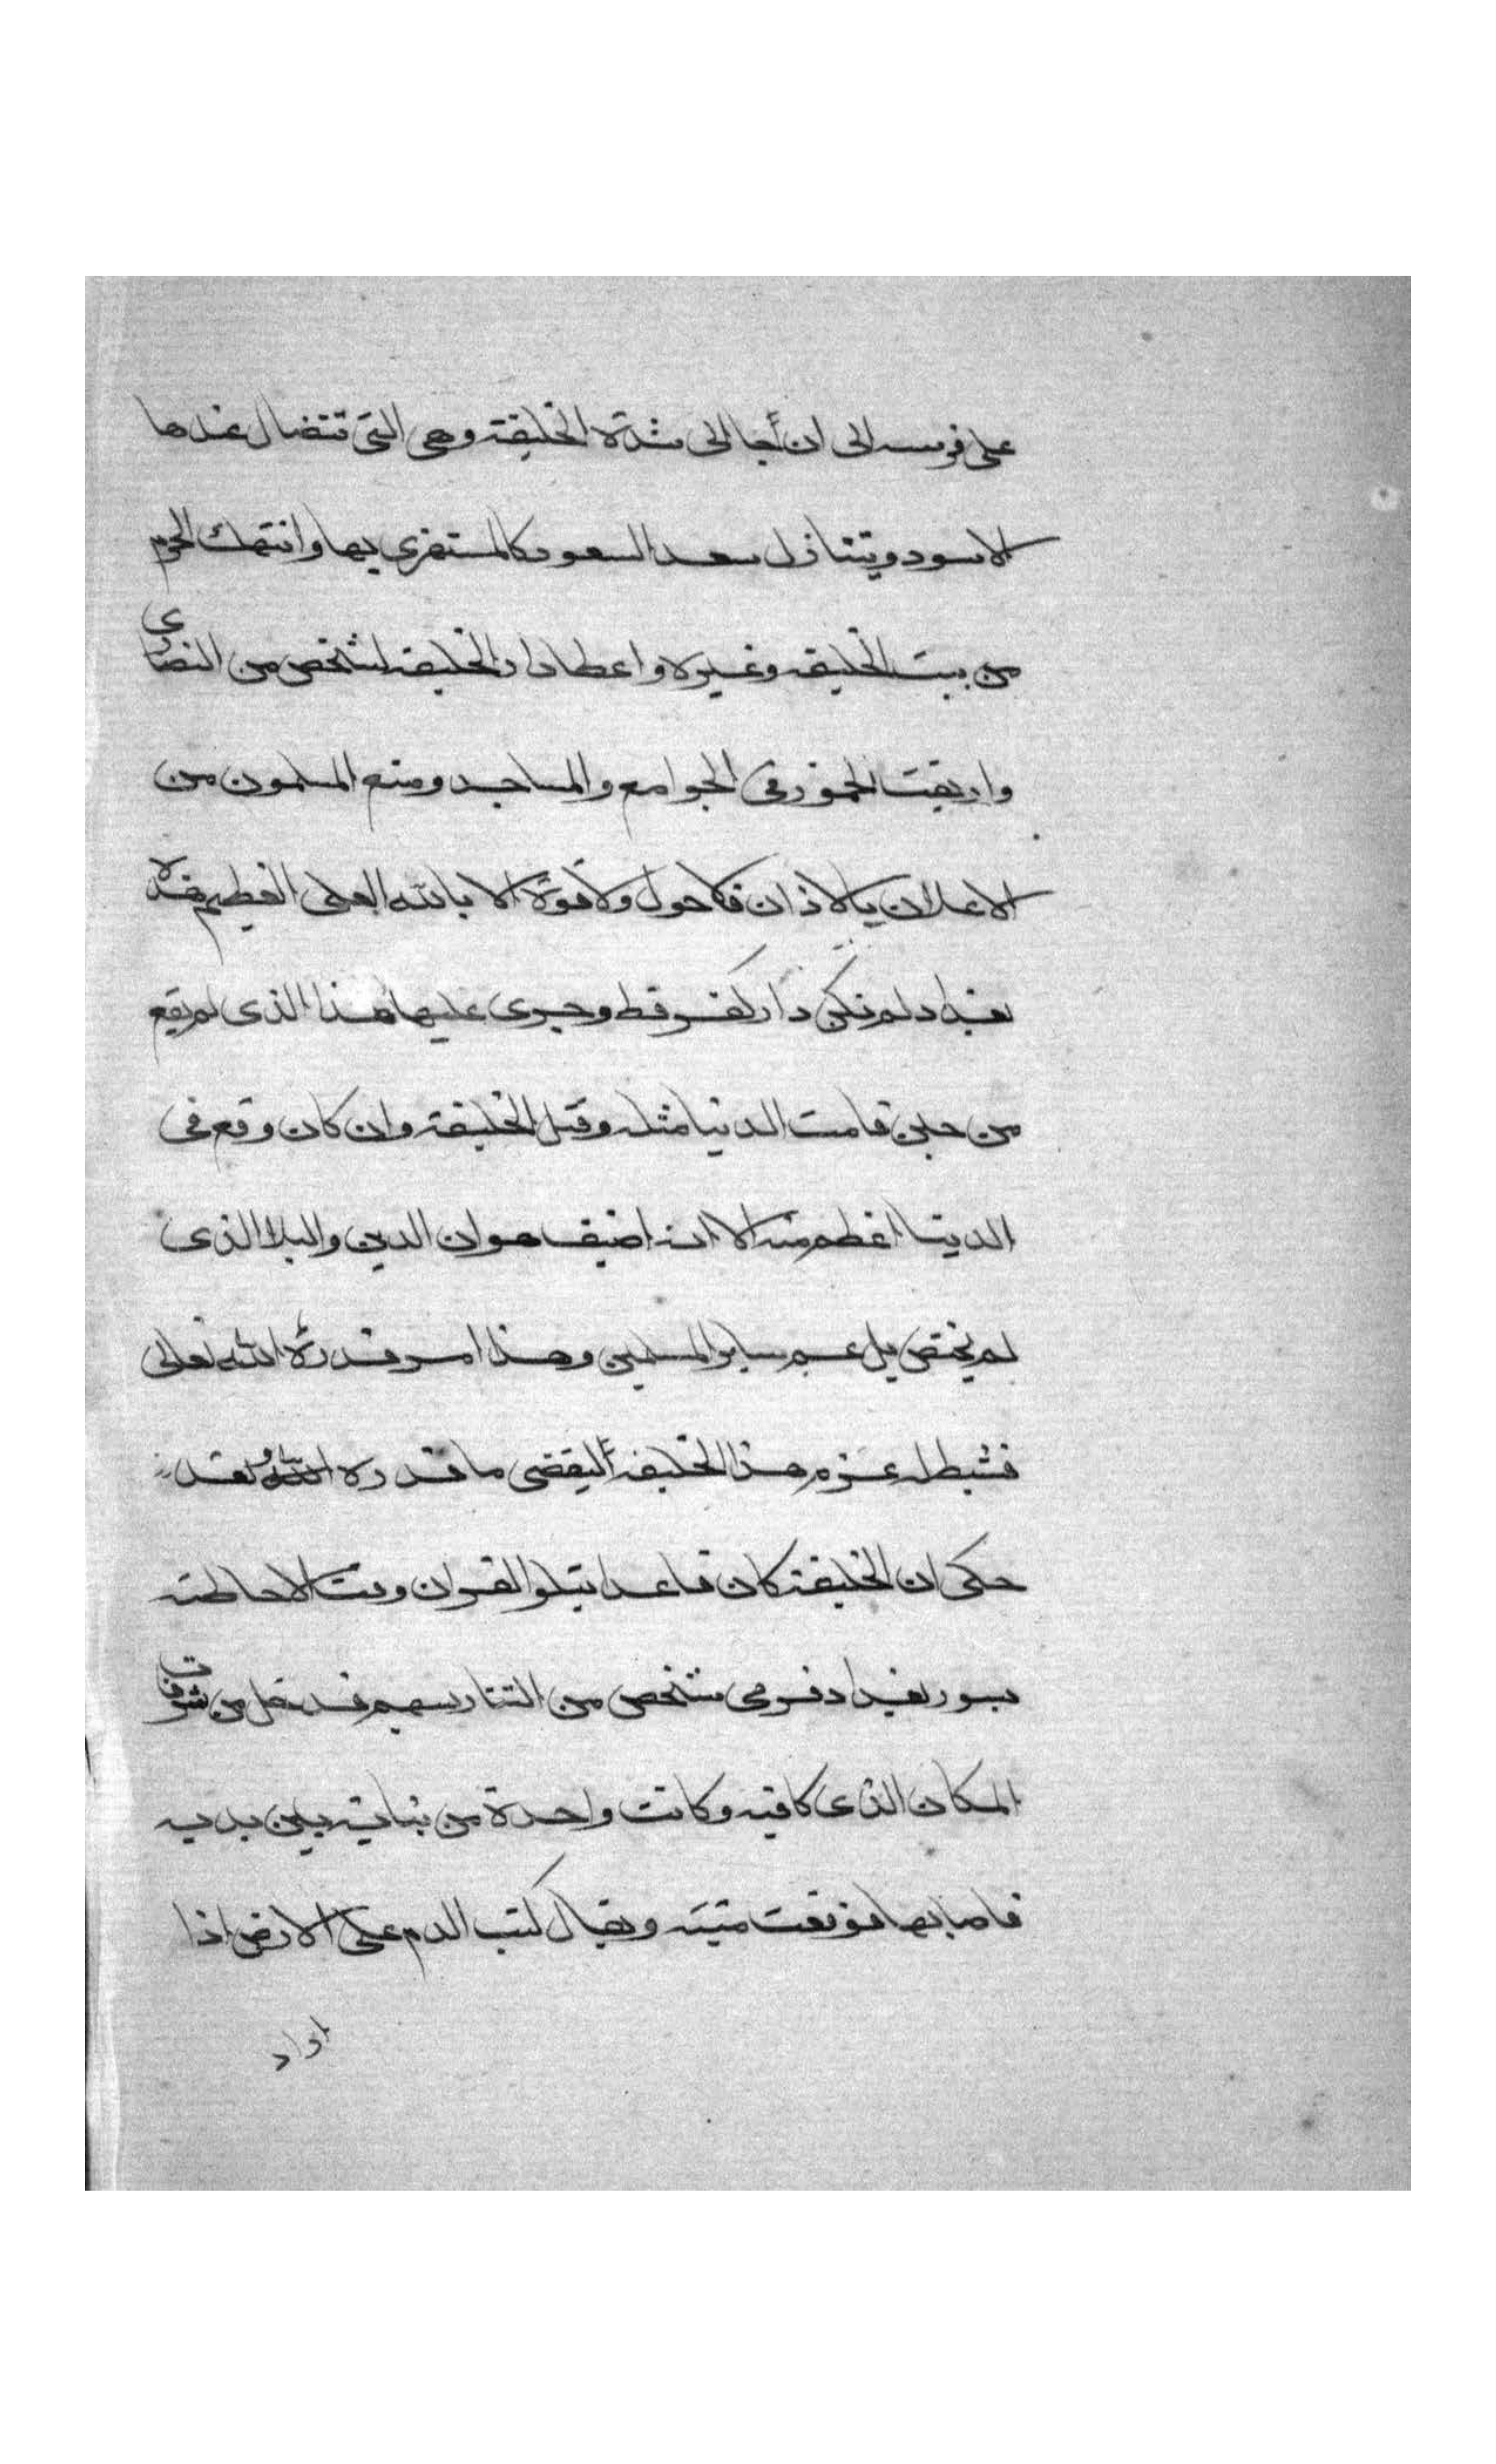 على فرسه الى ان أجا الى سُدّة الخليفة وهى التى تتضال عندها
الاسود ويتنازل سعد السعود كالمستهزى بها وانتهك الحرم
من بيت الخليفه وغيره واعطا دار الخليفه لشخص من النصارى
واريقت الخمور فى الجوامع والمساجد ومنع المسلمون من
الاعلان بالاذان فلا حول ولا قوة الا بالله العلى العظيم هذه
بغداد لم تكن دار كفر قط وجرى عليها هذا الذى لم يقع
من حين قامت الدنيا مثله وقتل الخليفة وان كان وقع فى
الدنيا اعظم منه الا انه اضيف هوان الدين والبلا الذى
لم يختص بل عم ساير المسلمين وهذا امر قدره الله تعالى
فثبط له عزم هذا الخليفة ليقضى ما قدره الله ولقد
حكى ان الخليفة كان قاعدا يتلوا القران وقت الاحاطة
بسور بغداد فرمى شخص من التتار بسهم فدخل من شرفات
المكان الذى كا فيه وكانت واحدة من بناته بين يديه
فاصابها فوقعت ميتة ويقال كتب الدم على الارض اذا
اراد